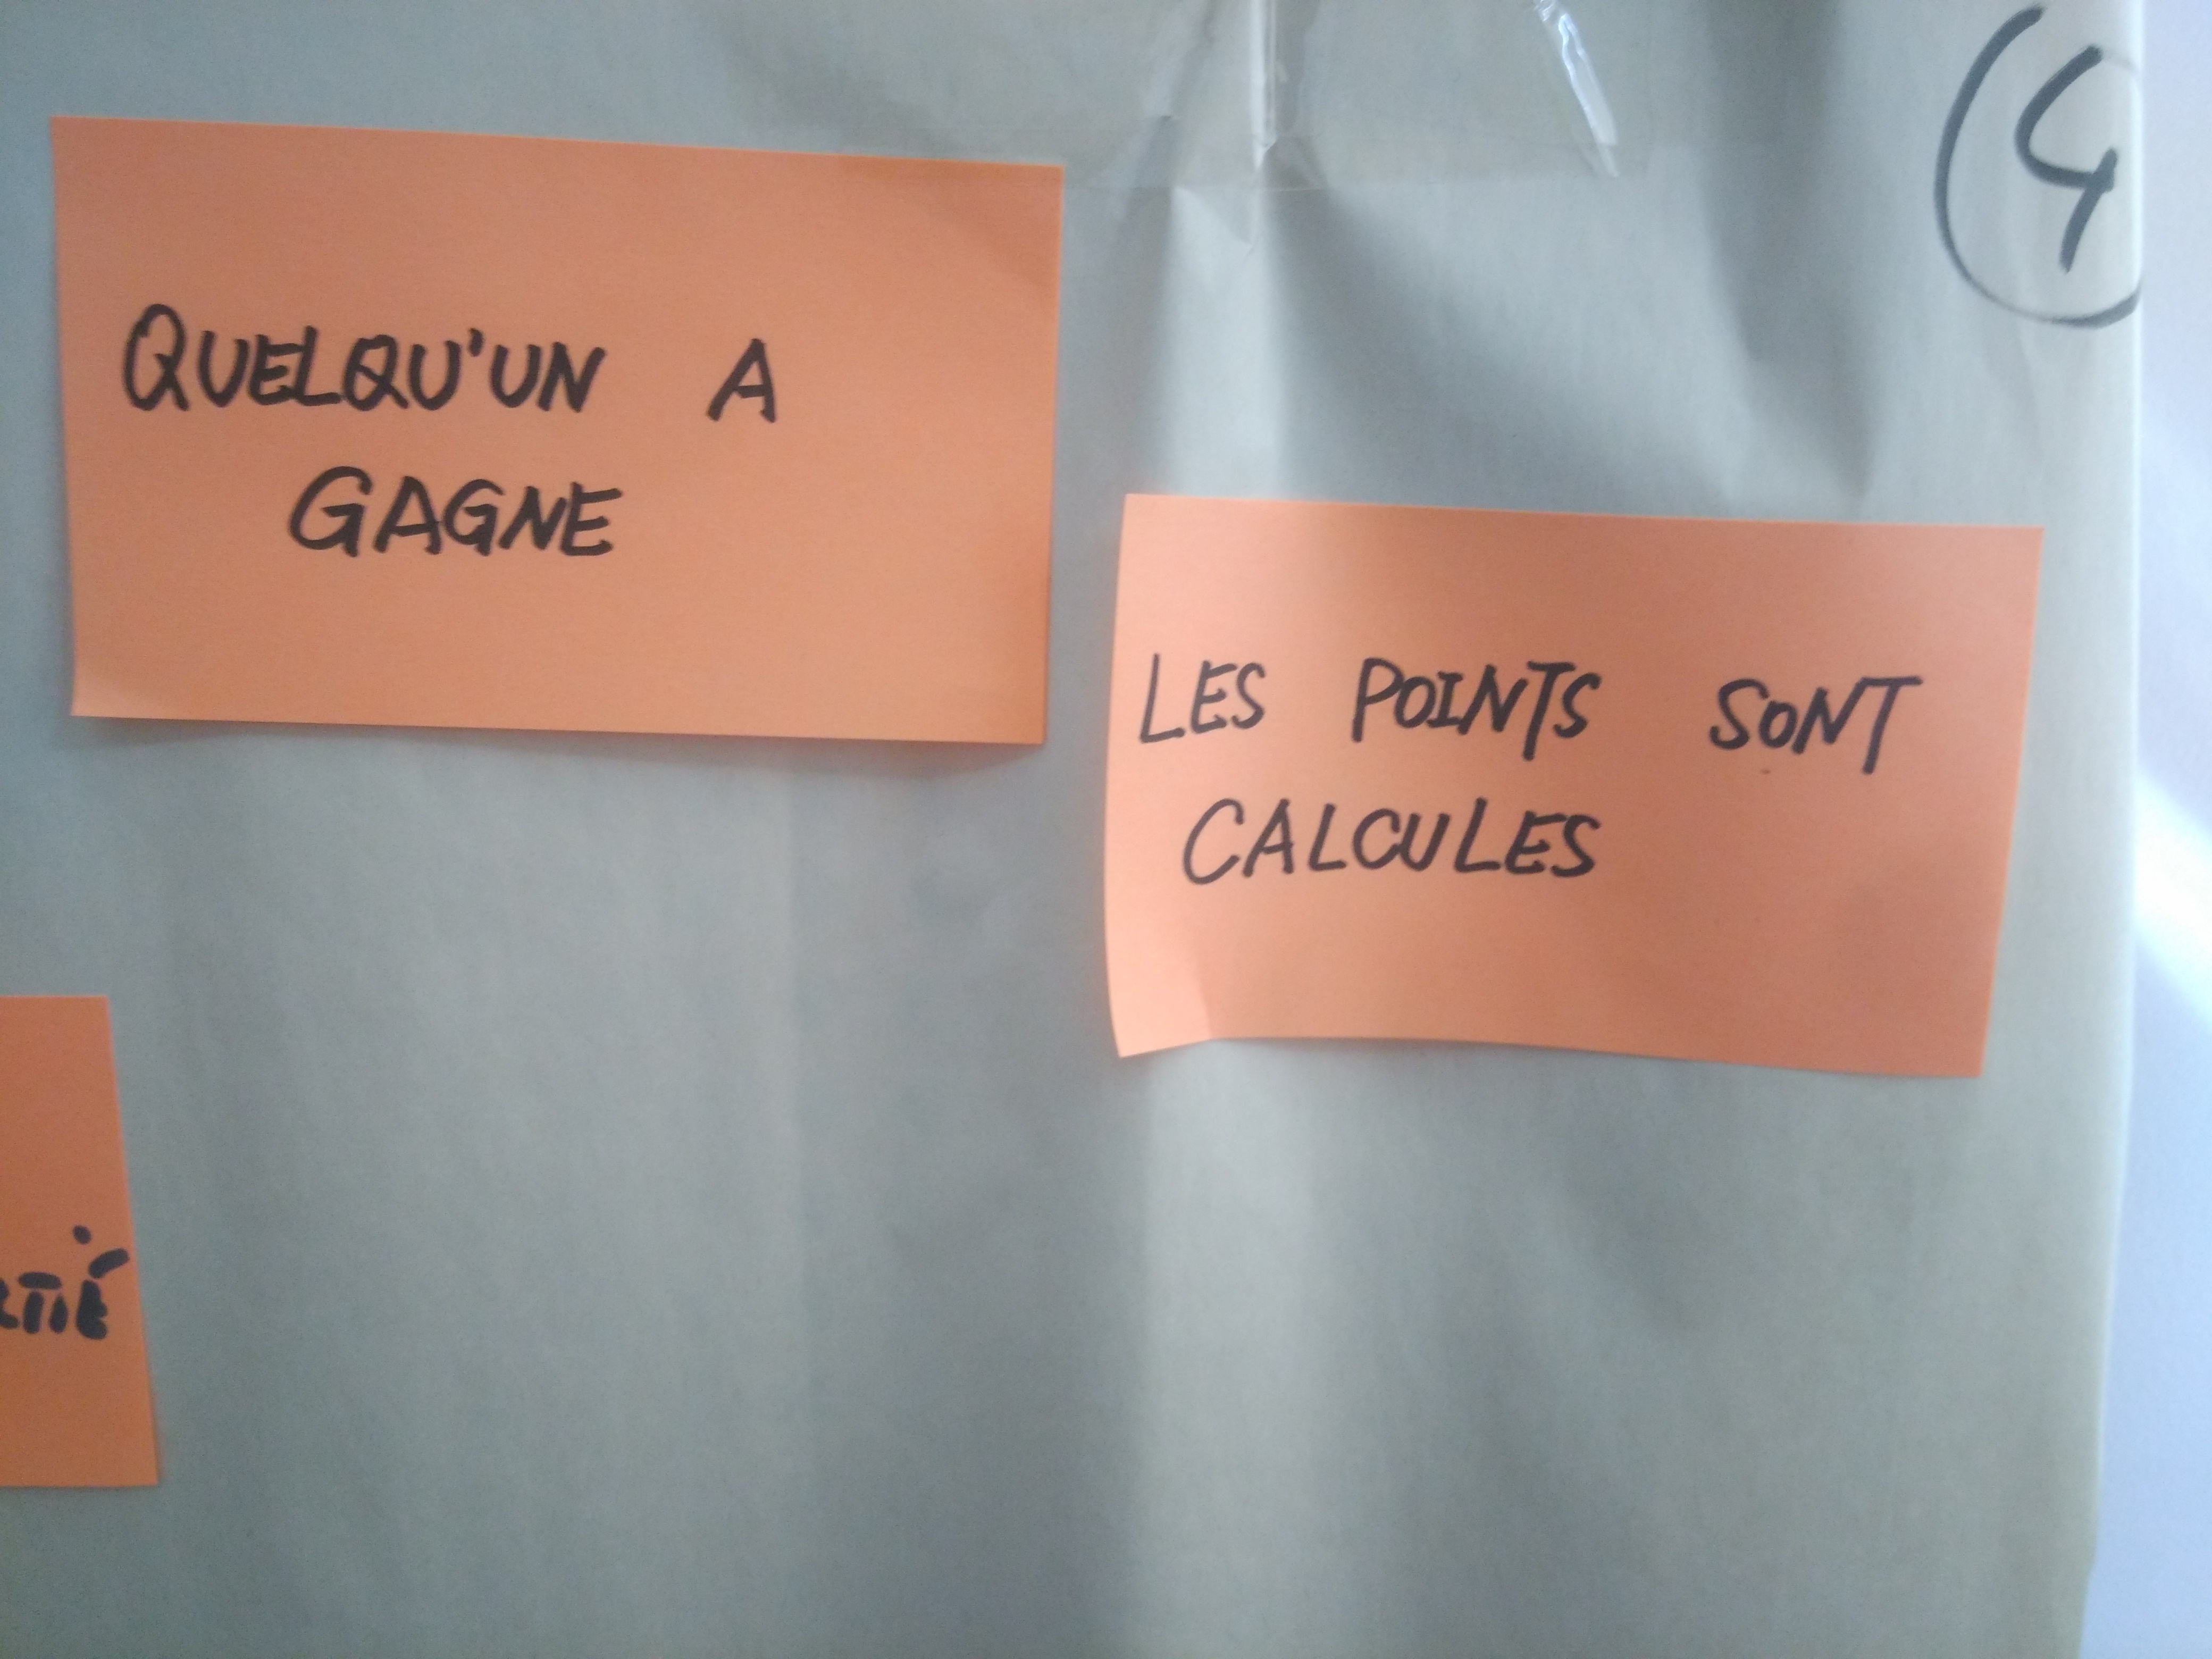 4
QUELQU'UN A
GAGNE
LES POINTS SONT
CALCULES